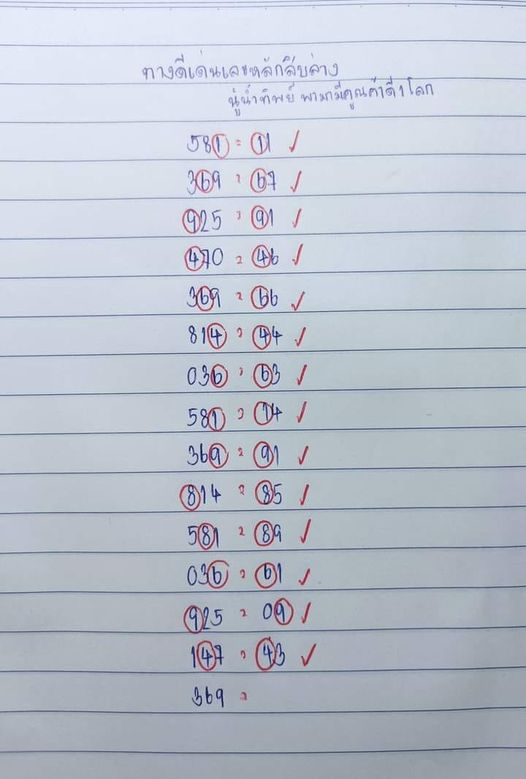 ทางดีเด่นเลขหลักสิบล่าง
นู๋น้ำทิพย์ พามามีคูณค้าดี1โลก
581 = 11 ✓
369 = 67 ✓
925 = 91 ✓
470 = 46 ✓
369 = 66 ✓
814 = 44 ✓
036 = 63 ✓
581 = 14 ✓
369 = 91 ✓
814 = 85 ✓
581 = 89 ✓
036 = 61 ✓
925 = 09 ✓
147 = 43 ✓
369 =